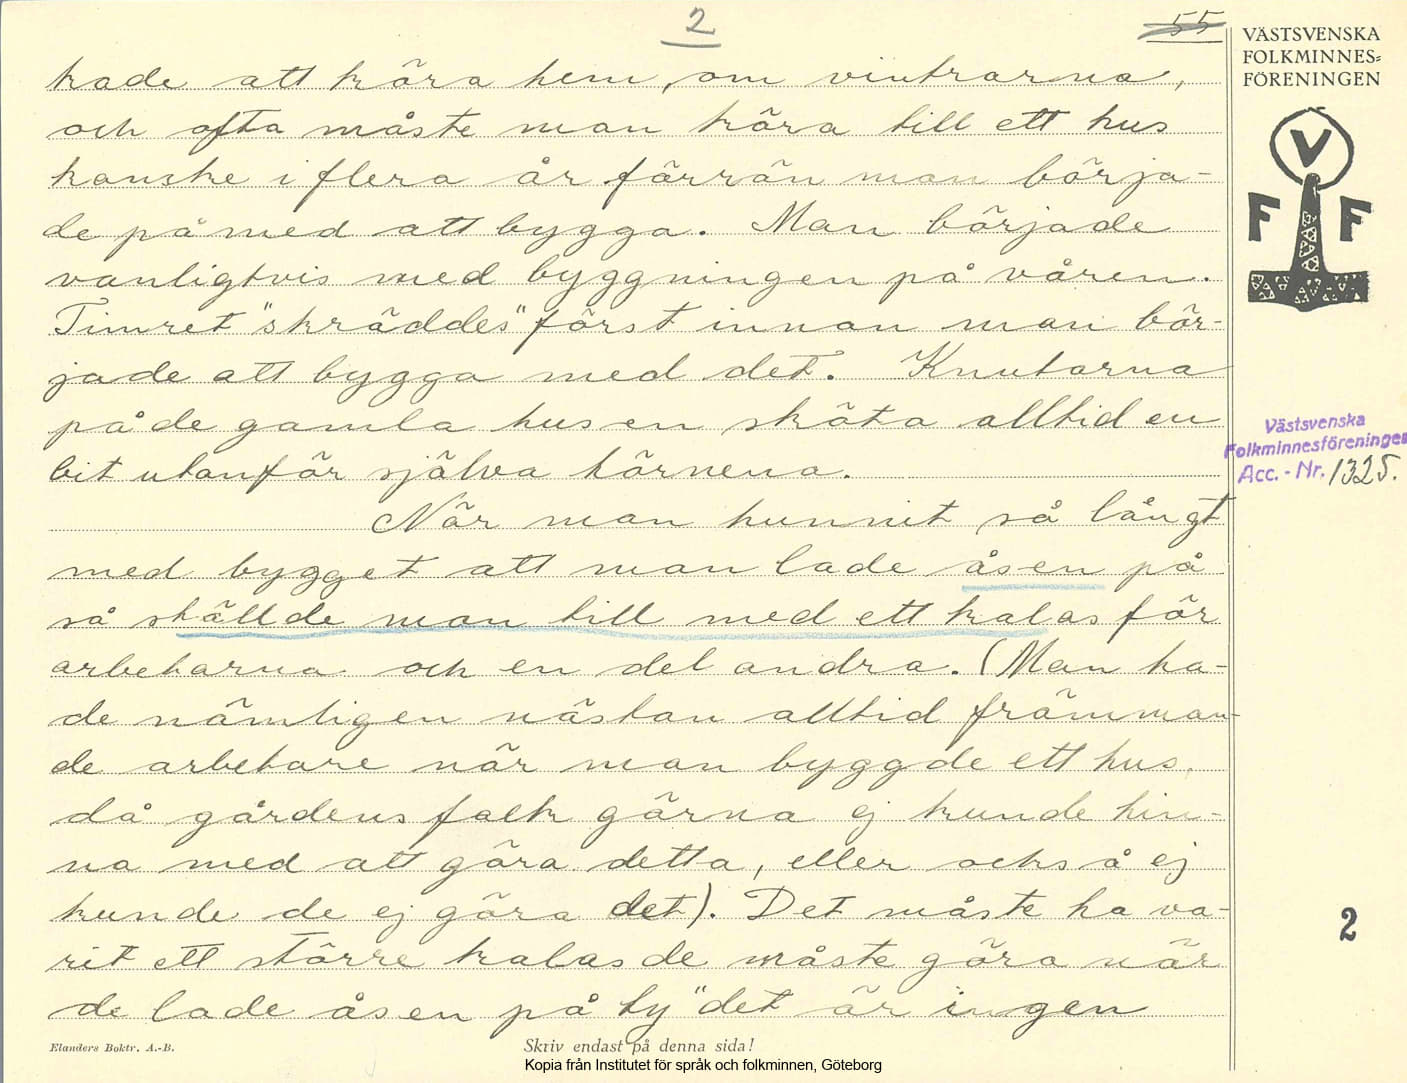 2
55
VÄSTSVENSKA
FOLKMINNES-
FÖRENINGEN
V
F F
kade att köra hem, om vintrarna,
och ofta måste man köra till ett hus
kanske i flera år förrän man börja-
de på med att bygga. Man började
vanligtvis med byggningen på våren.
Timret "skräddes" först innan man bör-
jade att bygga med det. Knutarna
på de gamla husen sköta alltid en
bit utanför själva hörnena.
Västsvenska
Folkminnesföreningen
Acc.-Nr. 1325.
När man hunnit så långt
med bygget att man lade åsen på
så ställde man till med ett kalas för
arbetarna och en del andra. (Man ha-
de nämligen nästan alltid främman-
de arbetare när man byggde ett hus,
då gårdens folk gärna ej kunde hin-
na med att göra detta, eller också ej
kunde de ej göra det). Det måste ha va-
rit ett större kalas de måste göra när
de lade åsen på ty "det är ingen
2
Elanders Boktr. A.-B.
Skriv endast på denna sida!
Kopia från Institutet för språk och folkminnen, Göteborg